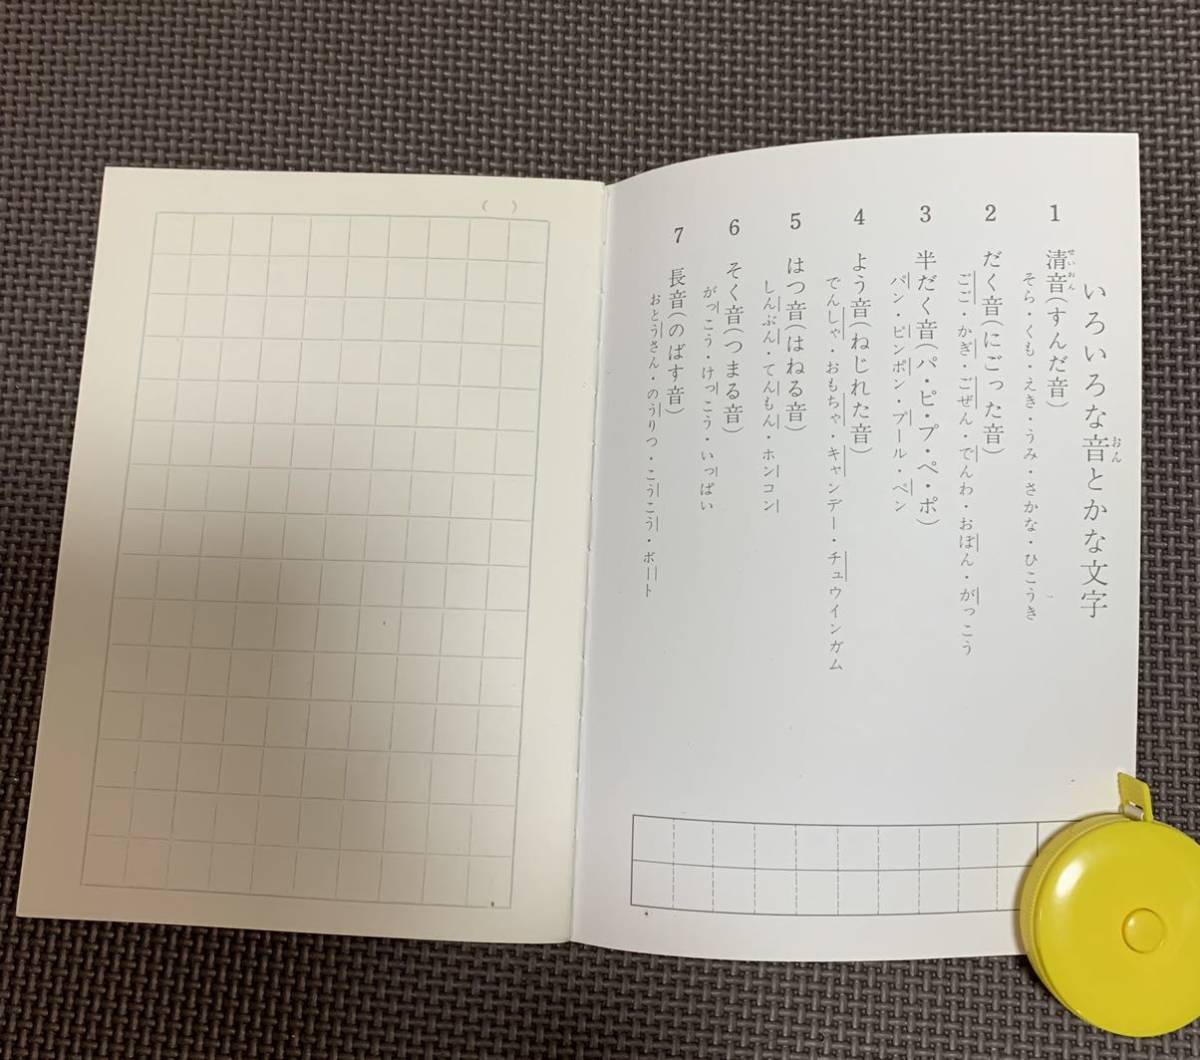 いろいろな音とかな文字
おん
1 清音(すんだ音)
せいおん
そら・くも・えき・うみ・さかな・ひこうき
2 だく音(にごった音)
ごご・かぎ・ごぜん・でんわ・おぼん・がっこう
3 半だく音(パ・ピ・プ・ペ・ポ)
パン・ピンポン・プール・ペン
4 よう音(ねじれた音)
でんしゃ・おもちゃ・キャンデー・チュウインガム
5 はつ音(はねる音)
しんぶん・てんもん・ホンコン
6 そく音(つまる音)
がっこう・けっこう・いっぱい
7 長音(のばす音)
おとうさん・のうりつ・こうこう・ボート
( )